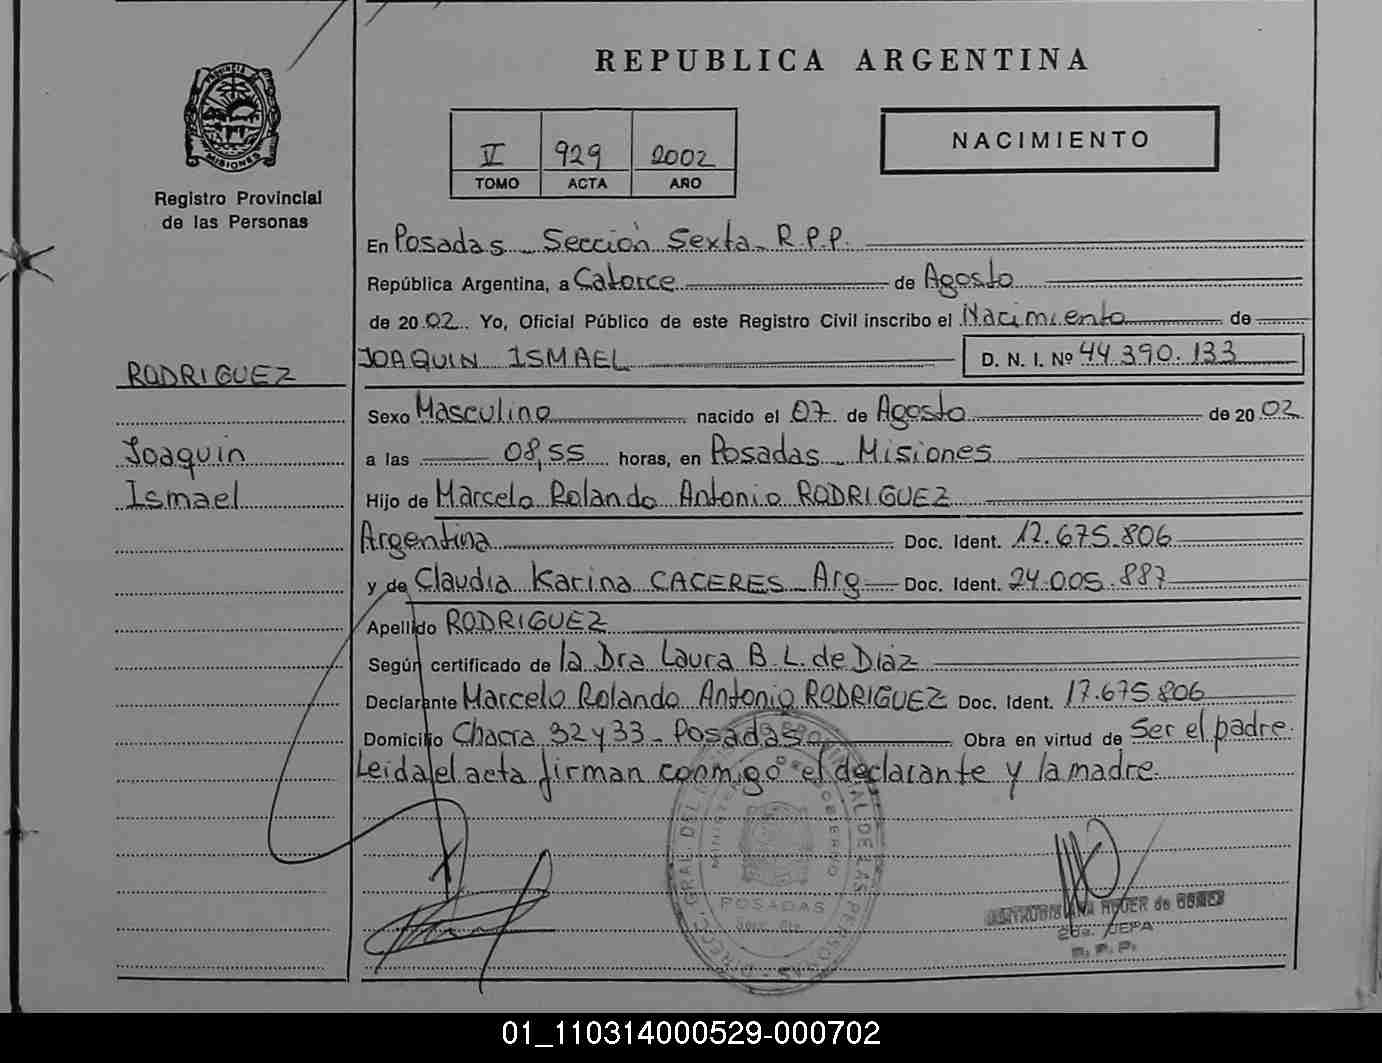 REPUBLICA ARGENTINA
PROVINCIA DE
MISIONES
Registro Provincial
de las Personas
V 929 2002
TOMO ACTA AÑO
NACIMIENTO
En Posadas - Sección Sexta - R.P.P.
República Argentina, a Catorce de Agosto
de 2002. Yo, Oficial Público de este Registro Civil inscribo el Nacimiento de
JOAQUIN ISMAEL D. N. I. Nº 44.390.133
RODRIGUEZ
Joaquin
Ismael
Sexo Masculino nacido el 07 de Agosto de 2002
a las 08,55 horas, en Posadas - Misiones
Hijo de Marcelo Rolando Antonio RODRIGUEZ
Argentina Doc. Ident. 17.675.806
y de Claudia Karina CACERES - Arg Doc. Ident. 24.005.887
Apellido RODRIGUEZ
Según certificado de la Dra Laura B. L. de Diaz
Declarante Marcelo Rolando Antonio RODRIGUEZ Doc. Ident. 17.675.806
Domicilio Chacra 32 y 33 - Posadas Obra en virtud de Ser el padre.
Leida el acta firman conmigo el declarante y la madre.
DIRECC. GRAL. DEL PROVINCIAL DE LAS PERSONAS
MINISTERIO DE GOBIERNO
POSADAS
de GOMEZ
2da. JEFA
R. P. P.
01_110314000529-000702